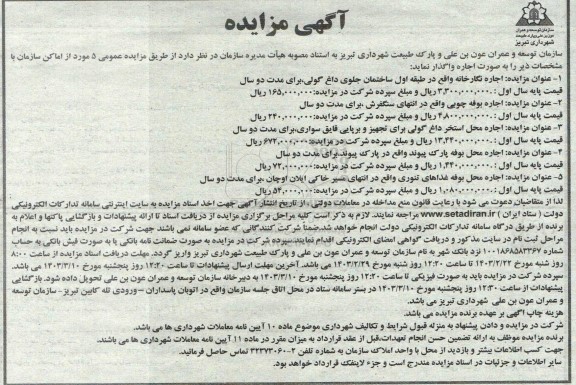 آگهی مزایده
سازمان توسعه و عمران
عون بن علی و پارک طبیعت
شهرداری تبریز
سازمان توسعه و عمران عون بن علی و پارک طبیعت شهرداری تبریز به استناد مصوبه هیأت مدیره سازمان در نظر دارد از طریق مزایده عمومی ۵ مورد از اماکن سازمان با
مشخصات ذیر را به صورت اجاره واگذار نماید:
۱- عنوان مزایده: اجاره نگارخانه واقع در طبقه اول ساختمان جلوی داغ گولی،برای مدت دو سال
قیمت پایه سال اول : ۳,۳۰۰,۰۰۰,۰۰۰ ریال و مبلغ سپرده شرکت در مزایده: ۱۶۵,۰۰۰,۰۰۰ ریال
۲- عنوان مزایده: اجاره بوفه چوبی واقع در انتهای سنگفرش ،برای مدت دو سال
قیمت پایه سال اول : ۴,۸۰۰,۰۰۰,۰۰۰ ریال و مبلغ سپرده شرکت در مزایده: ۲۴۰,۰۰۰,۰۰۰ ریال
۳- عنوان مزایده: اجاره محل استخر داغ گولی برای تجهیز و برپایی قایق سواری،برای مدت دو سال
قیمت پایه سال اول : ۱۳,۴۴۰,۰۰۰,۰۰۰ ریال و مبلغ سپرده شرکت در مزایده: ۶۷۲,۰۰۰,۰۰۰ ریال
۴- عنوان مزایده: اجاره محل بوفه پارک پیوند واقع در پارک پیوند،برای مدت دو سال
قیمت پایه سال اول : ۱,۴۴۰,۰۰۰,۰۰۰ ریال و مبلغ سپرده شرکت در مزایده: ۷۲,۰۰۰,۰۰۰ ریال
۵- عنوان مزایده: اجاره محل بوفه غذاهای تنوری واقع در انتهای مسیر خاکی ایلان اوچان ،برای مدت دو سال
قیمت پایه سال اول : ۱,۰۸۰,۰۰۰,۰۰۰ ریال و مبلغ سپرده شرکت در مزایده: ۵۴,۰۰۰,۰۰۰ ریال
لذا از متقاضیان دعوت می شود با رعایت قانون منع مداخله در معاملات دولتی ، از تاریخ انتشار آگهی جهت اخذ اسناد مزایده به سایت اینترنتی سامانه تدارکات الکترونیکی
دولت ( ستاد ایران ) www.setadiran.ir مراجعه نمایند. لازم به ذکر است کلیه مراحل برگزاری مزایده از دریافت اسناد تا ارائه پیشنهادات و بازگشایی پاکتها و اعلام به
برنده از طریق درگاه سامانه تدارکات الکترونیکی دولت انجام خواهد شد.ضمناً شرکت کنندگانی که عضو سامانه نمی باشند جهت شرکت در مزایده باید نسبت به انجام
مراحل ثبت نام در سایت مذکور و دریافت گواهی امضای الکترونیکی اقدام نمایند.سپرده شرکت در مزایده به صورت ضمانت نامه بانکی یا به صورت فیش بانکی به حساب
شماره نزد بانک شهر به نام سازمان توسعه و عمران عون بن علی و پارک طبیعت شهرداری تبریز واریز گردد. مهلت دریافت اسناد مزایده از ساعت ۸:۰۰
روز شنبه مورخ ۱۴۰۳/۲/۲۲ تا ساعت ۱۲:۲۰ روز شنبه مورخ ۱۴۰۳/۲/۲۹ می باشد. آخرین مهلت ارسال پیشنهادات تا ساعت ۱۲:۲۰ روز پنجشنبه مورخ ۱۴۰۳/۳/۱۰ می باشد.
سپرده شرکت در مزایده باید به صورت فیزیکی تا ساعت ۱۲:۲۰ روز پنجشنبه مورخ ۱۴۰۳/۳/۱۰ به دبیرخانه سازمان توسعه و عمران عون بن علی تحویل داده شود. بازگشایی
پیشنهادات از ساعت ۱۲:۳۰ روز پنجشنبه مورخ ۱۴۰۳/۳/۱۰ در بستر سامانه ستاد در محل اتاق جلسه سازمان واقع در اتوبان پاسداران –ورودی تله کابین تبریز– سازمان توسعه
و عمران عون بن علی شهرداری تبریز می باشد.
هزینه چاپ آگهی بر عهده برنده مزایده می باشد.
شرکت در مزایده و دادن پیشنهاد به منزله قبول شرایط و تکالیف شهرداری موضوع ماده ۱۰ آیین نامه معاملات شهرداری ها می باشد.
برنده مزایده موظف به ارائه تضمین حسن انجام تعهدات،قبل از عقد قرارداد به میزان مقرر در ماده ۱۱ آیین نامه معاملات شهرداری ها می باشد.
جهت کسب اطلاعات بیشتر و بازدید از محل با واحد املاک سازمان به شماره تلفن ۲-۳۳۳۷۳۰۶۰ تماس حاصل فرمایید.
سایر اطلاعات و جزئیات در اسناد مزایده مندرج است و جزء لاینفک قرارداد خواهد بود.